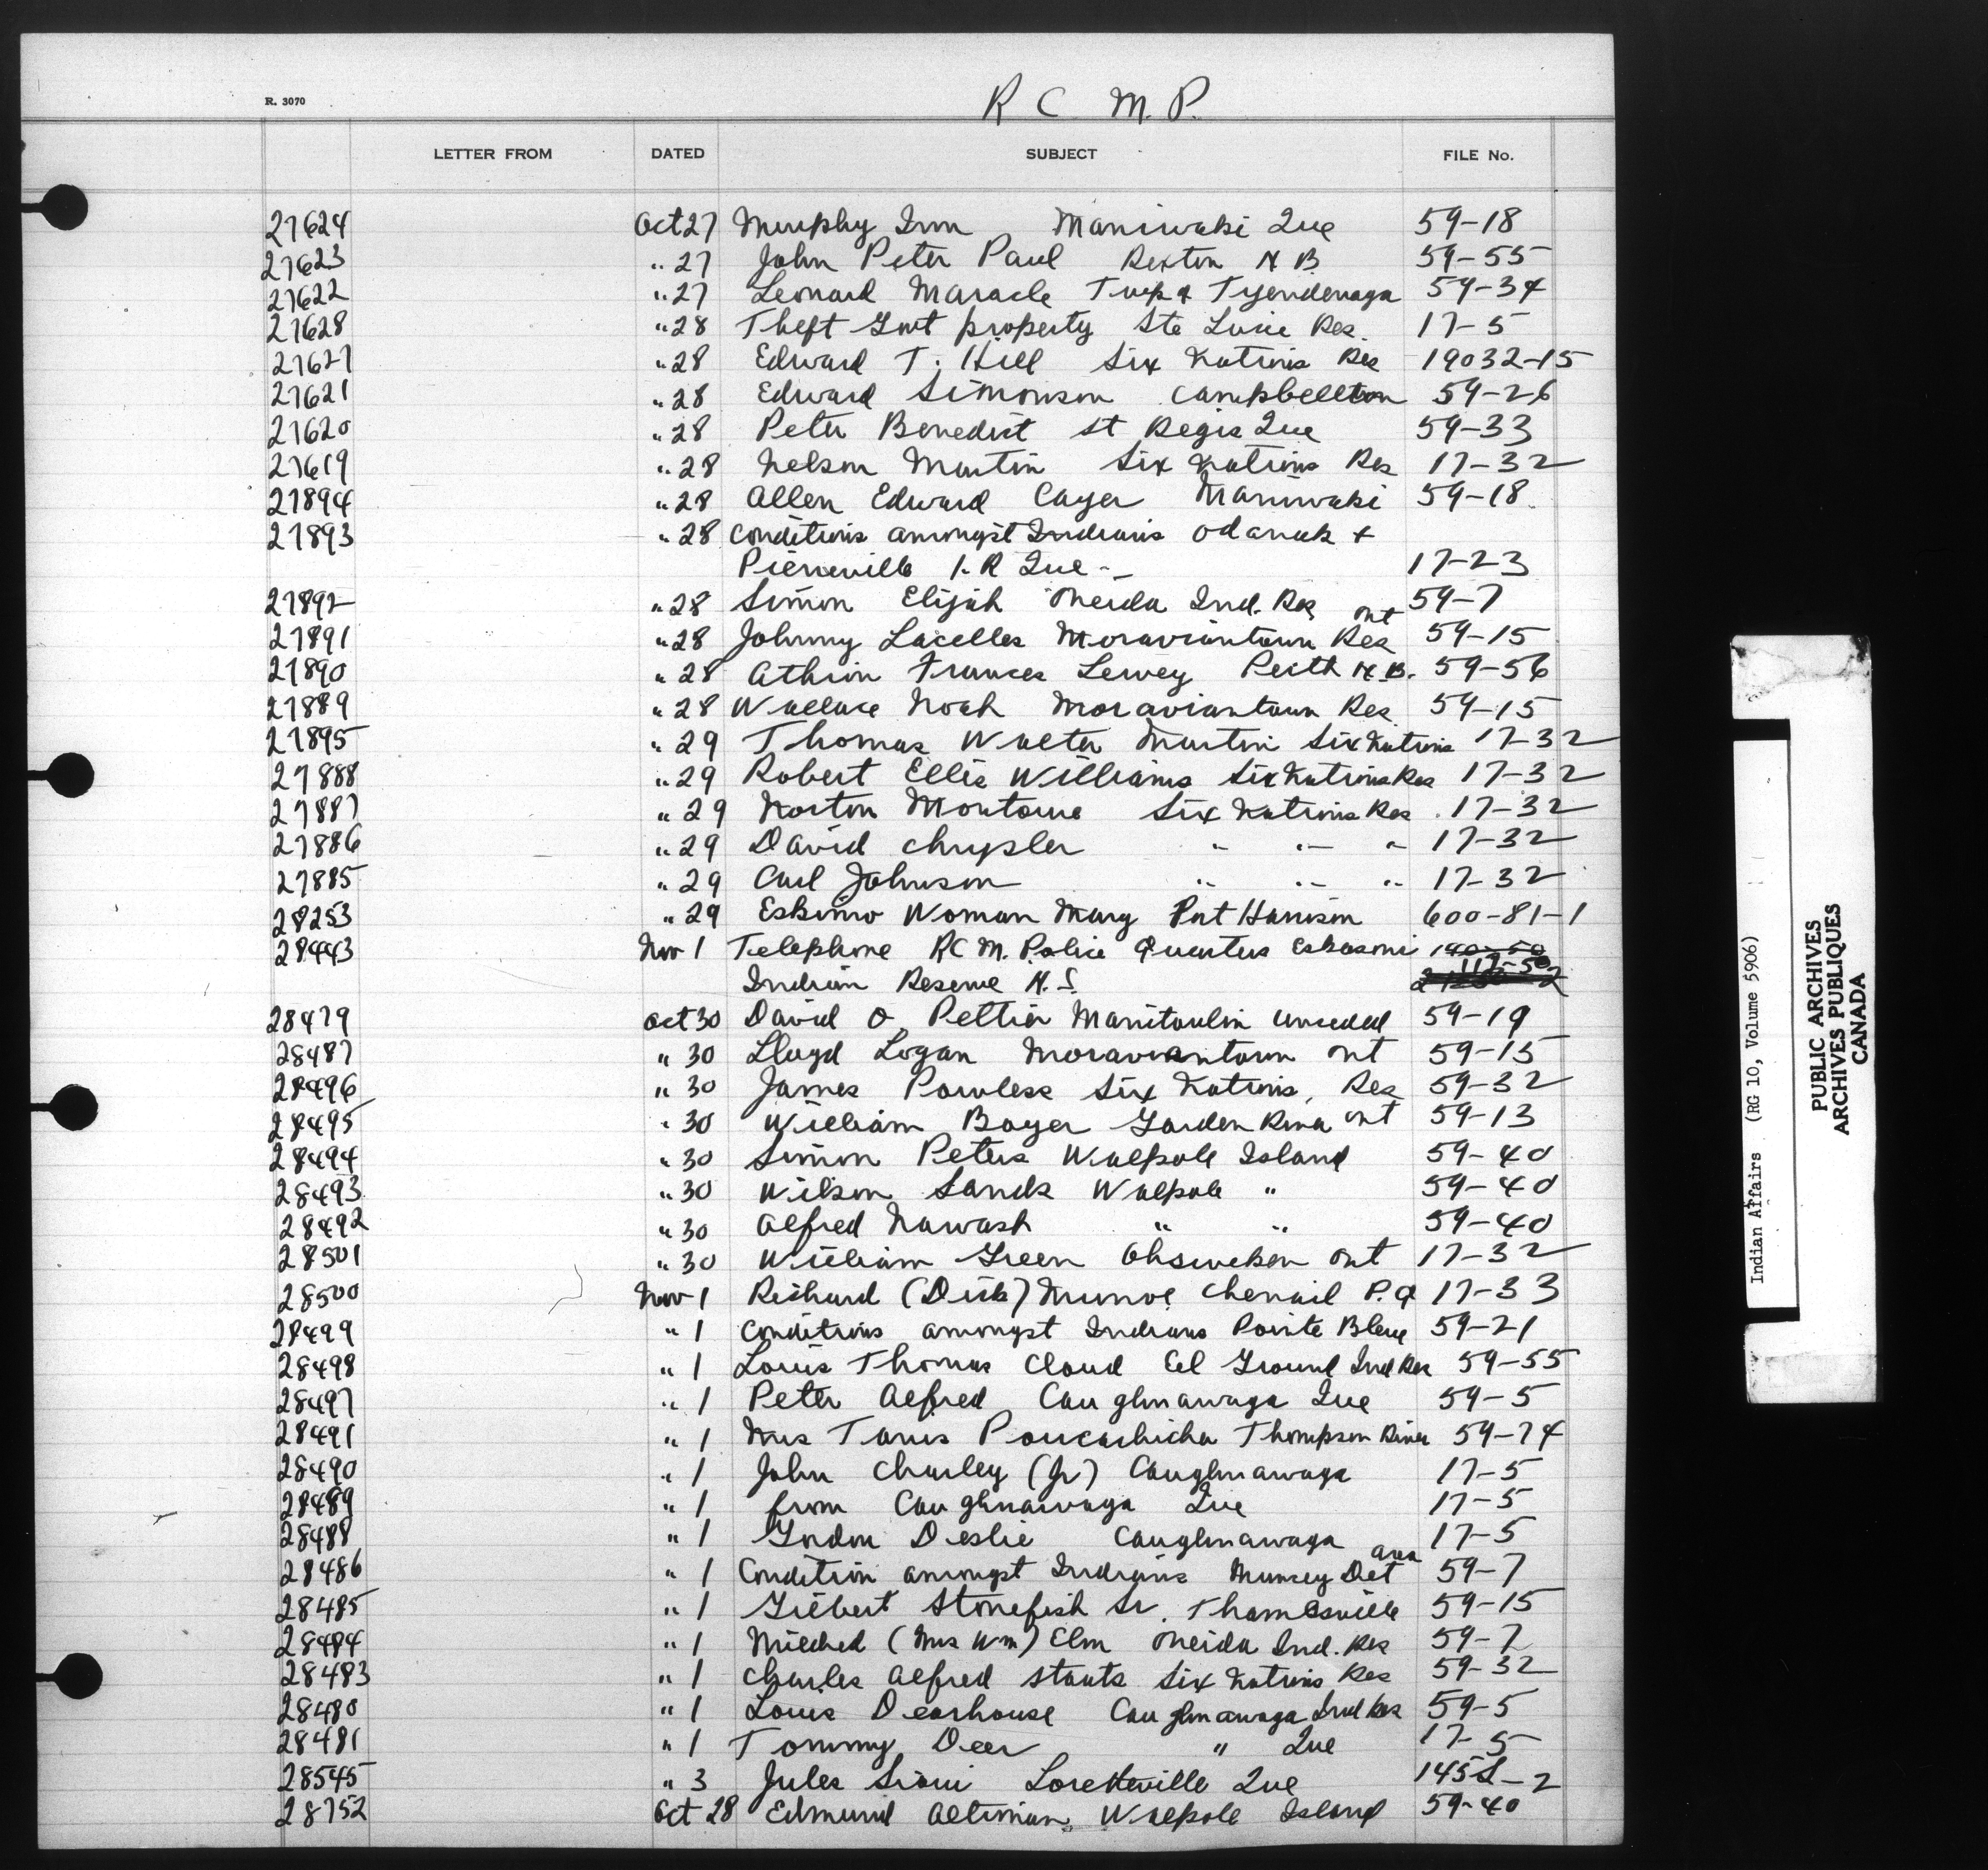 R C M. P.
R. 3070
LETTER FROM DATED SUBJECT FILE No.
27624 Oct 27 Murphy Inn Maniwaki Que 59-18
27623 " 27 John Peter Paul Rexton N B 59-55
27622 " 27 Leonard Maracle Twp of Tyendenaga 59-34
27628 " 28 Theft Gov't property Ste Lucie Res. 17-5
27627 " 28 Edward T. Hill Six Nations Res 19032-15
27621 " 28 Edward Simonson Campbellton 59-26
27620 " 28 Peter Benedict St Regis Que 59-33
27619 " 28 Nelson Martin Six Nations Res 17-32
27894 " 28 Allen Edward Cayer Maniwaki 59-18
27893 " 28 Conditions amongst Indians Odanak +
Pierreville I. R Que -- 17-23
27892 " 28 Simon Elijah Oneida Ind. Res 59-7
27891 " 28 Johnny Lacelles Moraviantown Res Ont 59-15
27890 " 28 Frances Lewey Perth N.B. 59-56
27889 " 28 Wallace Noah Moraviantown Res 59-15
27895 " 29 Thomas Walter Martin Six Nations 17-32
27888 " 29 Robert Ellis Williams Six Nations Res 17-32
27887 " 29 Norton Montour Six Nations Res. 17-32
27886 " 29 David Chrysler " " " 17-32
27885 " 29 Carl Johnson " " " 17-32
28253 " 29 Eskimo Woman Mary Port Harrison 600-81-1
28443 Nov 1 Telephone RC M. Police Quarters Eskasoni 140-50
Indian Reserve N. S. 117-50
28479 Oct 30 David O. Peltier Manitoulin unceded 59-19
28487 " 30 Lloyd Logan Moraviantown Ont 59-15
28496 " 30 James Powless Six Nations, Res 59-32
28495 " 30 William Boyer Garden River Ont 59-13
28494 " 30 Simon Peters Walpole Island 59-40
28493 " 30 Wilson Sands Walpole " 59-40
28492 " 30 Alfred Nawash " " 59-40
28501 " 30 William Green Ohsweken Ont 17-32
28500 Nov 1 Richard (Dick) Munroe Chenail P.Q 17-33
28499 " 1 Conditions amongst Indians Pointe Bleue 59-21
28498 " 1 Louis Thomas Cloud Eel Ground Ind Res 59-55
28497 " 1 Peter Alfred Caughnawaga Que 59-5
28491 " 1 Mrs Thompson River 59-74
28490 " 1 John Charley (Jr) Caughnawaga 17-5
28489 " 1 from Caughnawaga Que 17-5
28488 " 1 Gordon Deslie Caughnawaga 17-5
28486 " 1 Condition amongst Indians Muncey Det area 59-7
28485 " 1 Gilbert Stonefish Sr. Thamesville 59-15
28484 " 1 Mildred (Mrs Wm) Elm Oneida Ind. Res 59-7
28483 " 1 Charles Alfred Staats Six Nations Res 59-32
28480 " 1 Louis Deerhouse Caughnawaga Ind Res 59-5
28481 " 1 Tommy Deer " Que 17-5
28545 " 3 Jules Sioui Loretteville Que 145S-2
28752 Oct 28 Edmund Altiman, Walpole Island 59-40
Indian Affairs (RG 10, Volume 5906)
PUBLIC ARCHIVES
ARCHIVES PUBLIQUES
CANADA